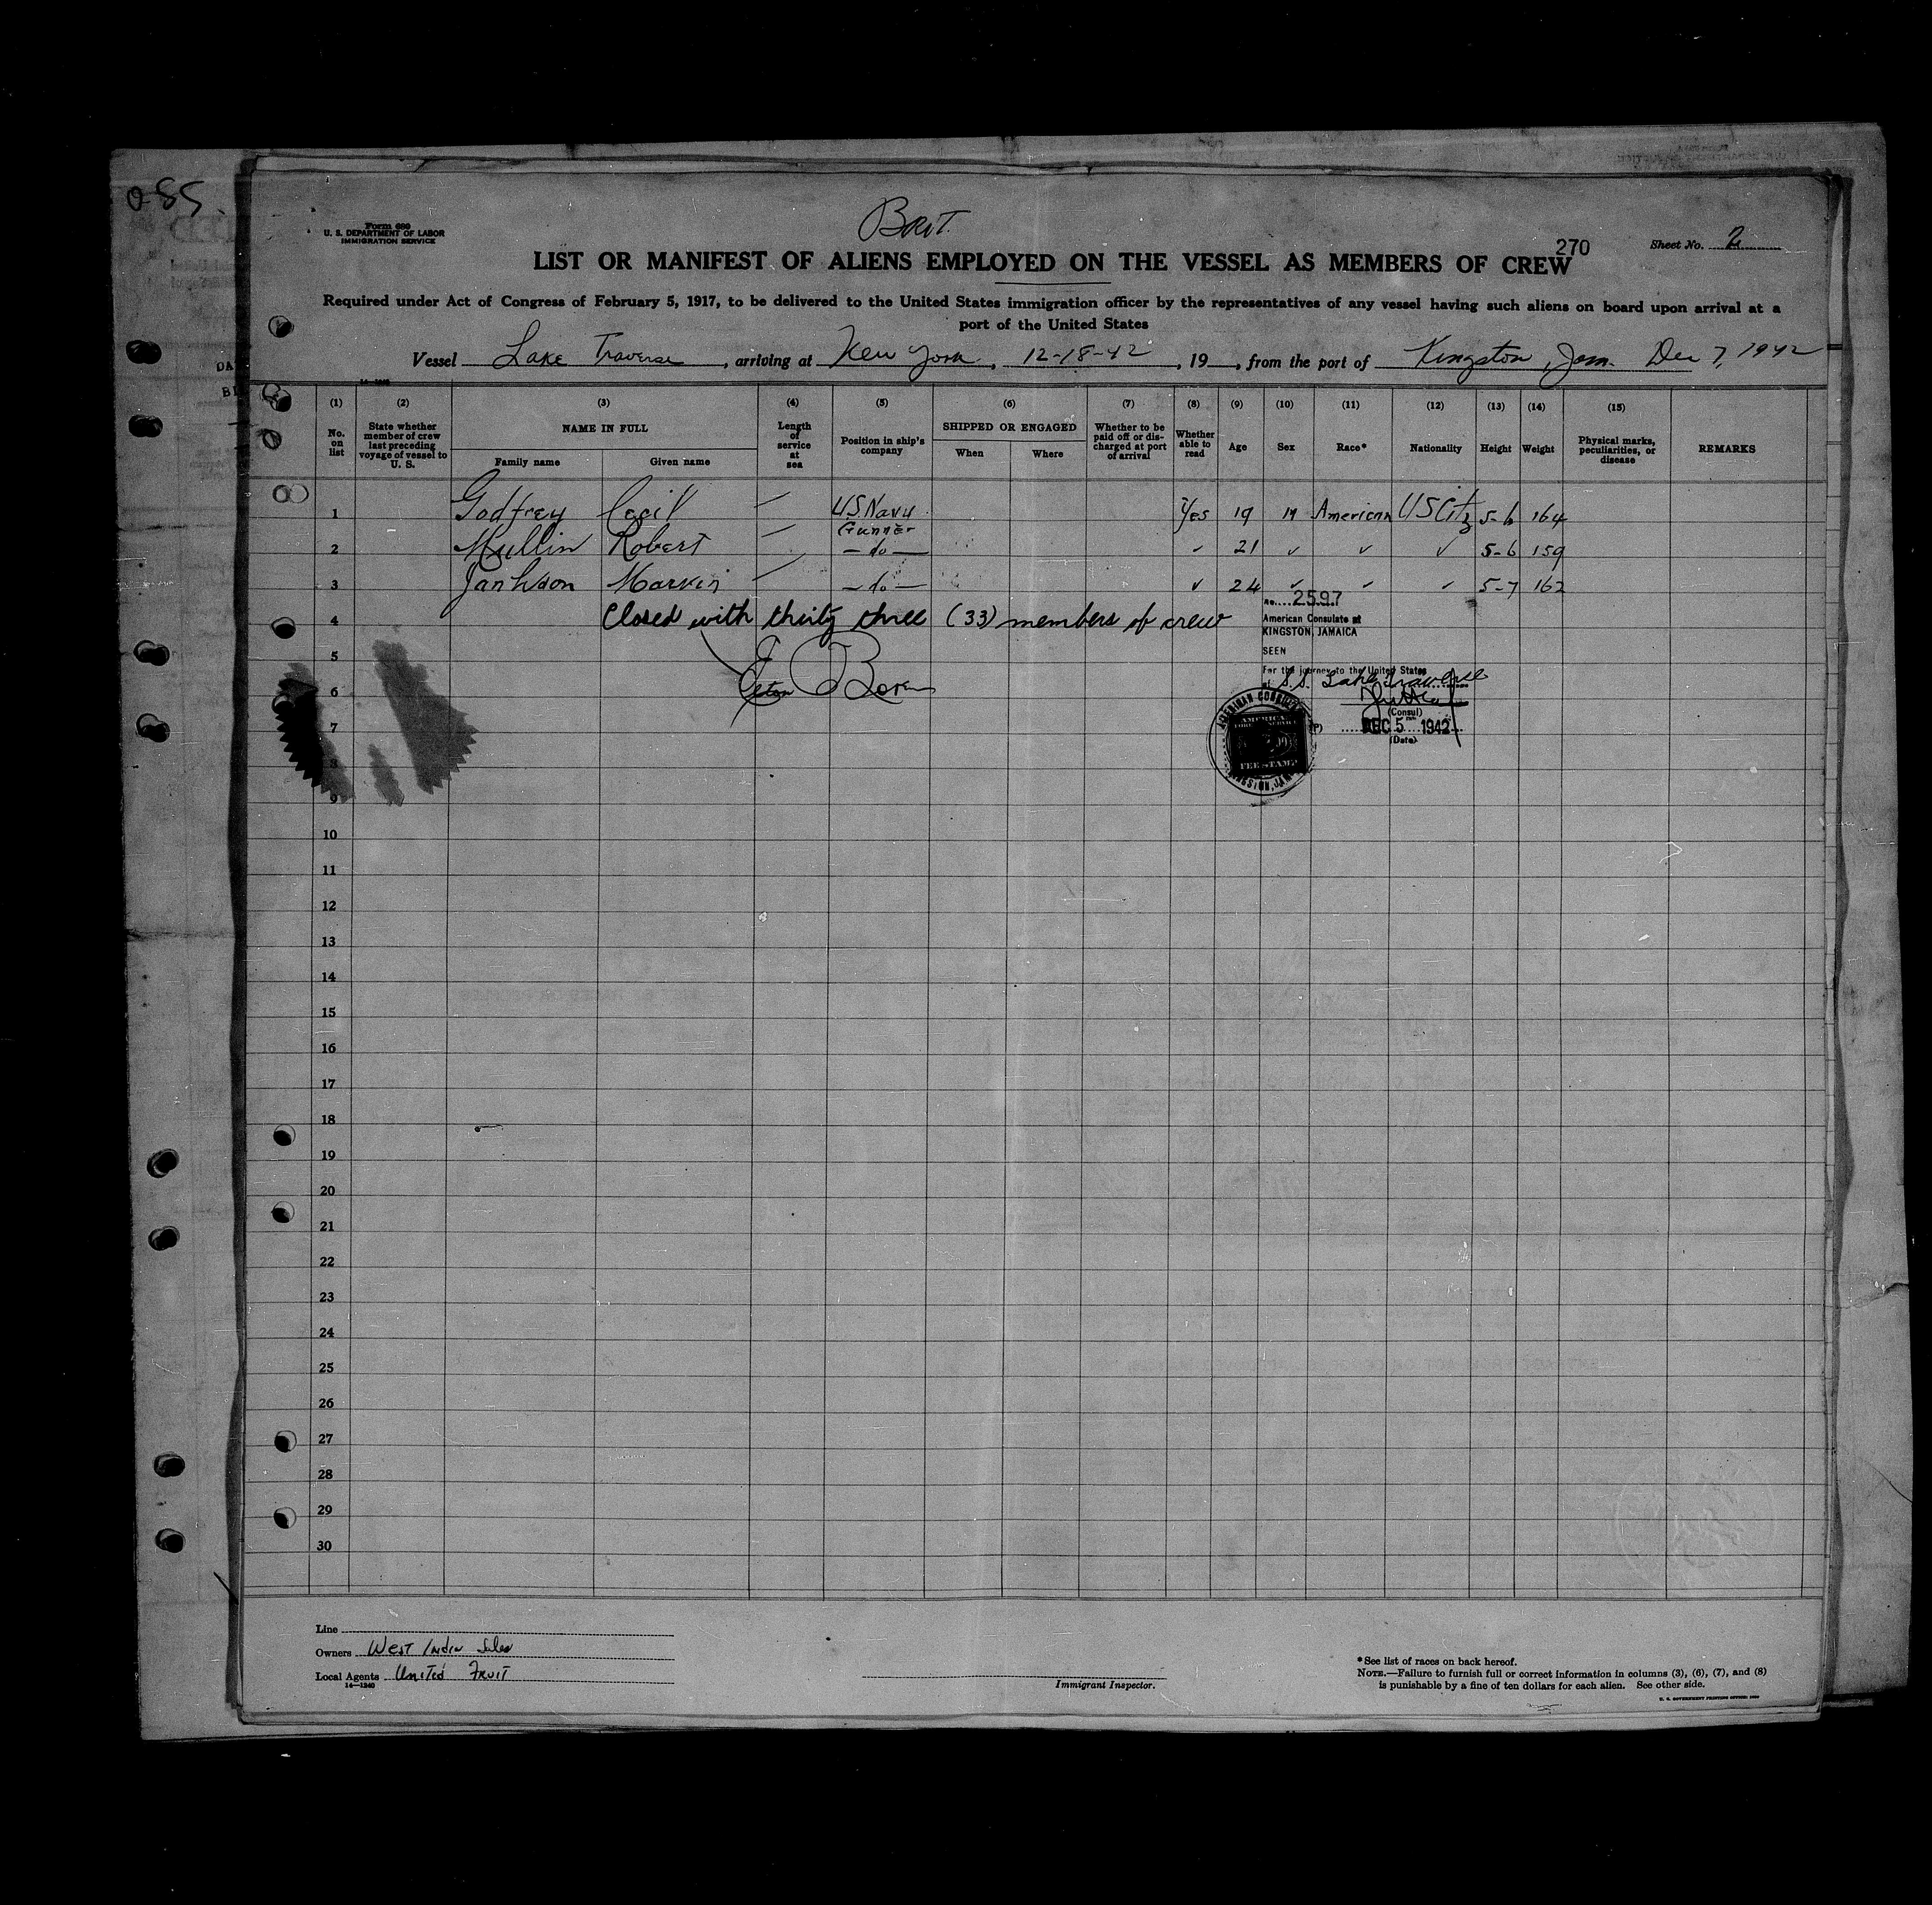 085
Form 680
U. S. DEPARTMENT OF LABOR
IMMIGRATION SERVICE
Brit.
270
Sheet No. 2
LIST OR MANIFEST OF ALIENS EMPLOYED ON THE VESSEL AS MEMBERS OF CREW
Required under Act of Congress of February 5, 1917, to be delivered to the United States immigration officer by the representatives of any vessel having such aliens on board upon arrival at a
port of the United States
Vessel Lake Traverse, arriving at New York, 12-18-42, 19 , from the port of Kingston, Jam. Dec 7, 1942
14—1240
(1) (2) (3) (4) (5) (6) (7) (8) (9) (10) (11) (12) (13) (14) (15)
No. on list
State whether member of crew last preceding voyage of vessel to U. S.
NAME IN FULL
Family name Given name
Length of service at sea
Position in ship's company
SHIPPED OR ENGAGED
When Where
Whether to be paid off or discharged at port of arrival
Whether able to read
Age Sex Race* Nationality Height Weight
Physical marks, peculiarities, or disease
REMARKS
1 Godfrey Cecil — U.S. Navy Gunner Yes 19 M American US Citz 5-6 164
2 Mullin Robert — — do — ✓ 21 ✓ ✓ ✓ 5-6 159
3 Markin — — do — ✓ 24 ✓ ✓ ✓ 5-7 162
4 Closed with thirty three (33) members of crew
No. 2597
American Consulate at
KINGSTON, JAMAICA
SEEN
For the journey to the United States
S.S. Lake Traverse
(Consul)
DEC 5 1942
(Date)
AMERICAN
FEE STAMP
5
6
7
8
9
10
11
12
13
14
15
16
17
18
19
20
21
22
23
24
25
26
27
28
29
30
Line
Owners West India Sales
Local Agents United Fruit
14—1240
Immigrant Inspector.
*See list of races on back hereof.
NOTE.—Failure to furnish full or correct information in columns (3), (6), (7), and (8)
is punishable by a fine of ten dollars for each alien. See other side.
U. S. GOVERNMENT PRINTING OFFICE